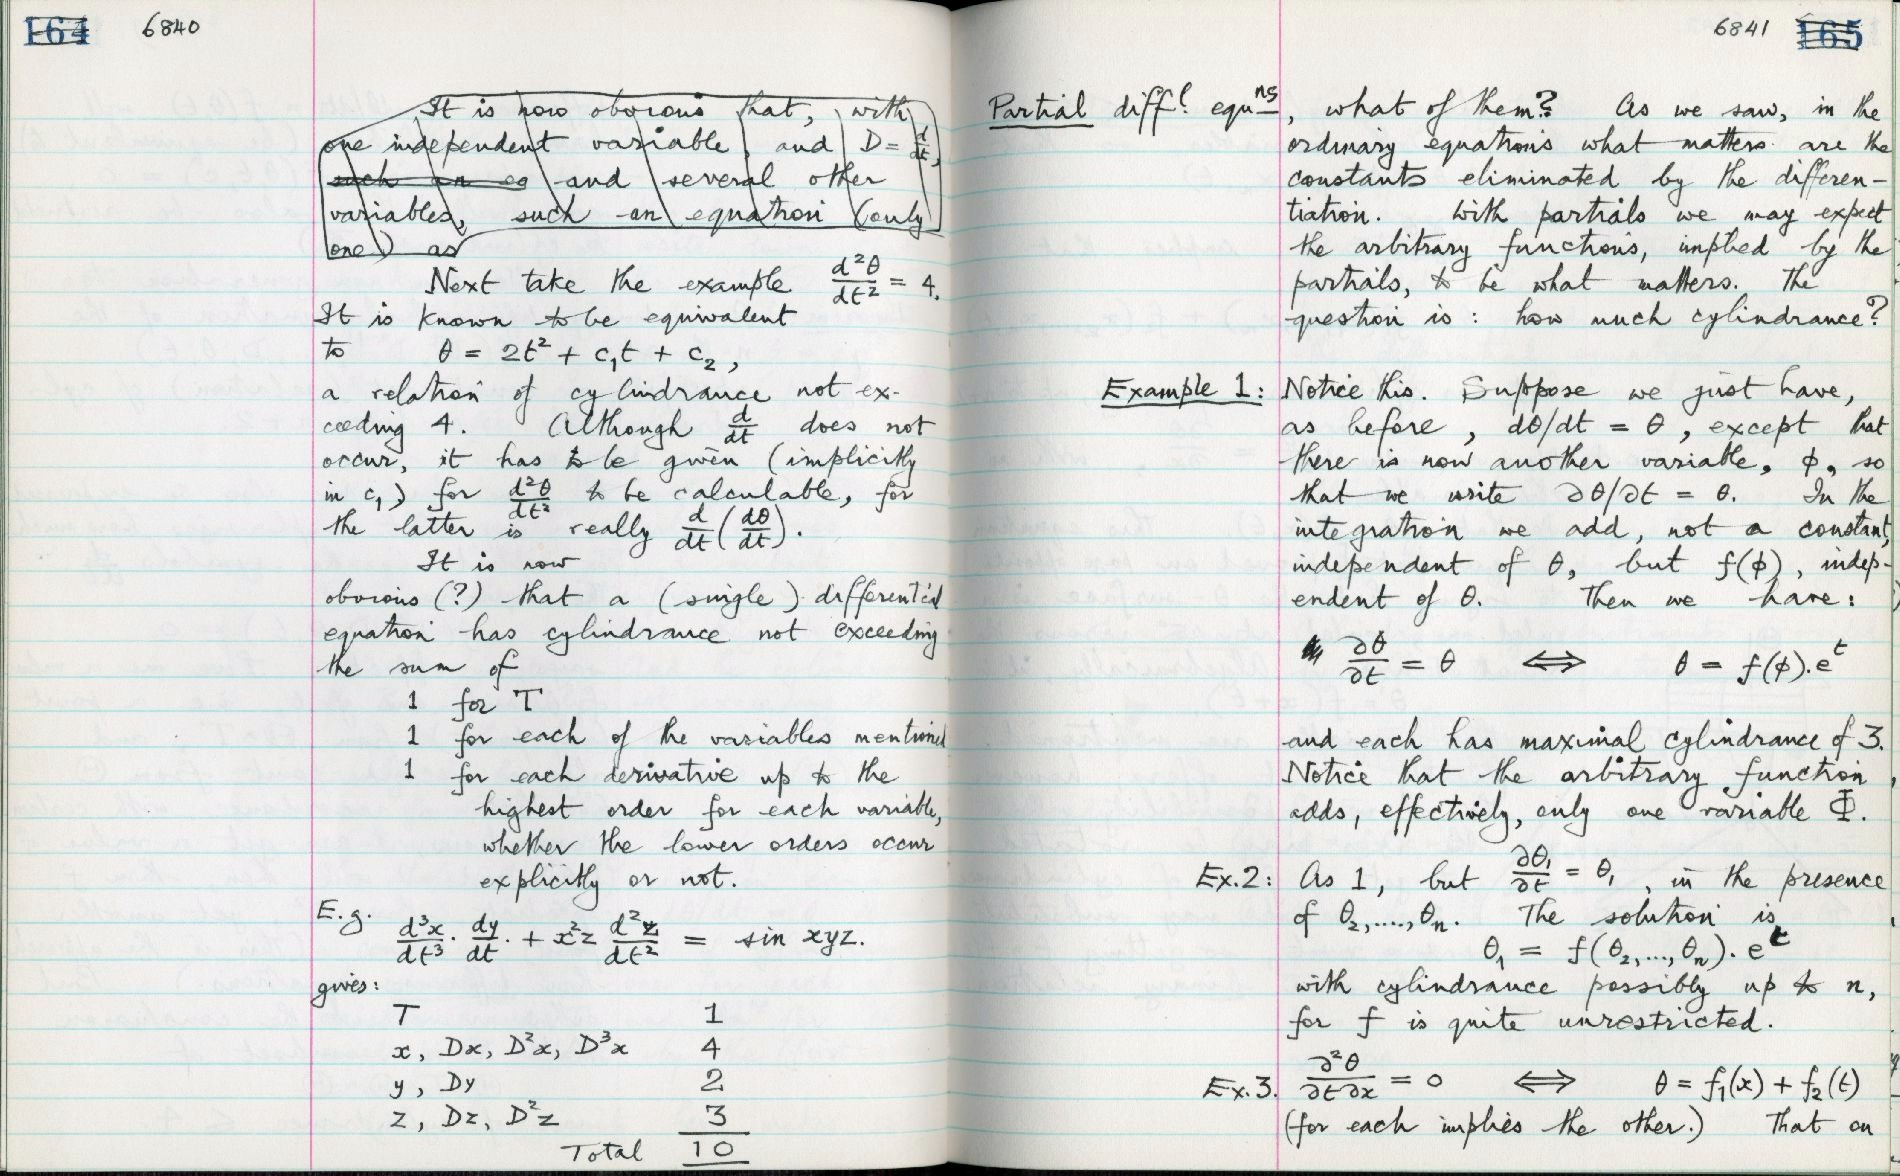 164 6840
It is now obvious that, with
one independent variable, and D = d/dt,
such an eq and several other
variables, such an equation (only
one) as
Next take the example d²θ/dt² = 4.
It is known to be equivalent
to θ = 2t² + c₁t + c₂,
a relation of cylindrance not ex-
ceeding 4. Although d/dt does not
occur, it has to be given (implicitly
in c₁) for d²θ/dt² to be calculable, for
the latter is really d/dt(dθ/dt).
It is now
obvious (?) that a (single) differential
equation has cylindrance not exceeding
the sum of
1 for T
1 for each of the variables mentioned
1 for each derivative up to the
highest order for each variable,
whether the lower orders occur
explicitly or not.
E.g. d³x/dt³ . dy/dt . + x²z d²z/dt² = sin xyz.
gives:
T 1
x, Dx, D²x, D³x 4
y, Dy 2
z, Dz, D²z 3
Total 10
6841 165
Partial diffˡ equⁿˢ, what of them? As we saw, in the
ordinary equations what matters are the
constants eliminated by the differen-
tiation. With partials we may expect
the arbitrary functions, implied by the
partials, to be what matters. The
question is: how much cylindrance?
Example 1: Notice this. Suppose we just have,
as before, dθ/dt = θ, except that
there is now another variable, ϕ, so
that we write ∂θ/∂t = θ. In the
integration we add, not a constant,
independent of θ, but f(ϕ), indep-
endent of θ. Then we have:
∂θ/∂t = θ ⟺ θ = f(ϕ).eᵗ
and each has maximal cylindrance of 3.
Notice that the arbitrary function
adds, effectively, only one variable Φ.
Ex.2: As 1, but ∂θ₁/∂t = θ₁, in the presence
of θ₂,....,θₙ. The solution is
θ₁ = f(θ₂,...,θₙ).eᵗ
with cylindrance possibly up to n,
for f is quite unrestricted.
Ex.3. ∂²θ/∂t∂x = 0 ⟺ θ = f₁(x) + f₂(t)
(for each implies the other.) That on